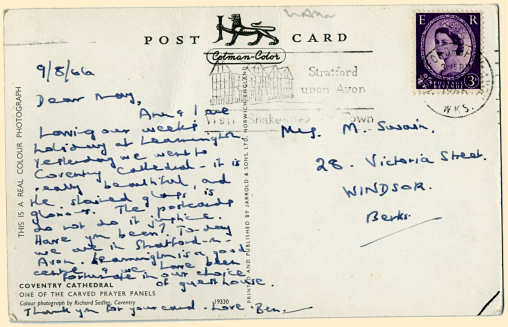 POST CARD
Cotman-Color
E R
3D
Stratford
upon Avon
Visit Shakespeare's Town
WKS.
9/8/66
Dear May,
Ann & I are
having our week's
holiday at Leamington
Yesterday we went to
Coventry Cathedral - it is
really beautiful, and
the stained glass is
glorious. The postcards
do not do it justice.
Have you been? To-day
we are in Stratford-on-
Avon. Leamington is a good
centre & we have been
fortunate in our choice
of guest house.
Thank you for your card. Love. Ben.
Mrs. M. Swain.
28. Victoria Street.
WINDSOR.
Berks.
THIS IS A REAL COLOUR PHOTOGRAPH
PRINTED AND PUBLISHED BY JARROLD & SONS LTD. NORWICH, ENGLAND
COVENTRY CATHEDRAL
ONE OF THE CARVED PRAYER PANELS
Colour photograph by Richard Sadler, Coventry
19330